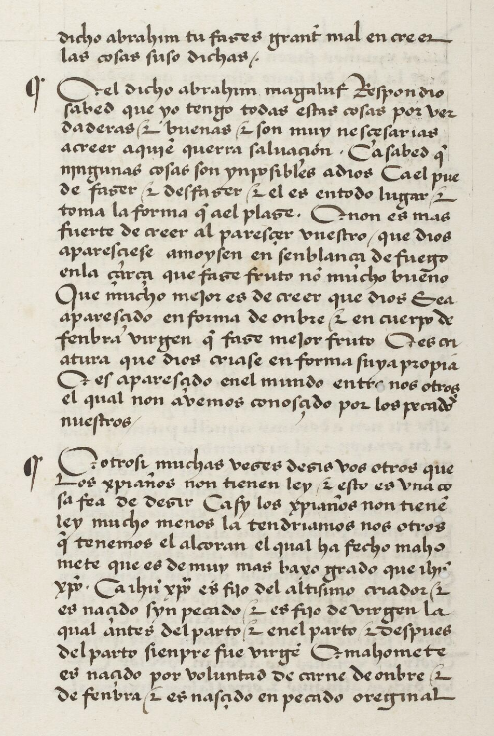 dicho abrahim tu fazes grant mal en creer
las cosas suso dichas /.
¶ E el dicho abrahim magaluf Respondio
sabed que yo tengo todas estas cosas por ver
daderas / & buenas / & son muy nescesarias
a creer aquiē querra saluaçion . Ca sabed q̄
ningunas cosas son ynposibles a dios Ca el pue
de fazer / & desfazer / & el es en todo lugar / &
toma la forma q̄ a el plaze . E non es mas
fuerte de creer al paresçer vuestro / que dios
aparesçiese amoysen en senblança de fuego
en la çarça que faze fruto nō mucho bueno
Que mucho mejor es de creer que dios Sea
aparesçido en forma de onbre / & en cuerpo de
fenbra virgen q̄ faze mejor fruto E es cri
atura que dios criase en forma suya propia
E es aparesçido enel mundo entre nos otros
el qual non avemos conosçido por los pecados
nuestros /
¶ E otrosi muchas vezes dezis vos otros que
Los xp̄ianos non tienen ley / & esto es vna co
sa fea de dezir Ca sy los xp̄ianos non tienē
ley mucho menos la tendriamos nos otros
q̄ tenemos el alcoran el qual ha fecho maho
mete que es de muy mas baxo grado que ih̄u
xp̄o . Ca ih̄u xp̄o es fijo del altisimo criador / &
es nacido syn pecado / & es fijo de virgen la
qual antes del parto / & enel parto / & despues
del parto sienpre fue virgē E mahomete
es nacido por voluntad de carne de onbre / &
de fenbra / & es nasçido en pecado oreginal